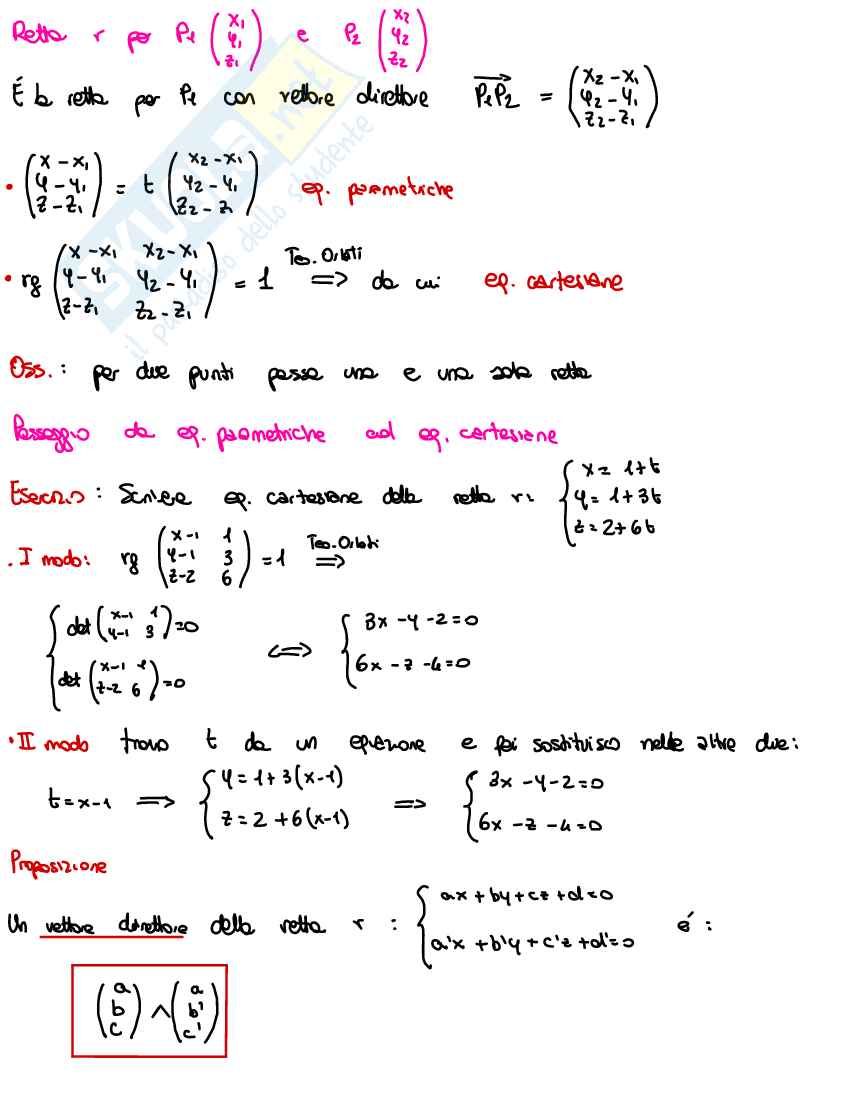 Retta r per P₁ (x₁ y₁ z₁) e P₂ (x₂ y₂ z₂)
É la retta per P₁ con vettore direttore P₁P₂ = (x₂-x₁ y₂-y₁ z₂-z₁)
• (x-x₁ y-y₁ z-z₁) = t (x₂-x₁ y₂-y₁ z₂-z₁) eq. parametriche
• rg (x-x₁ x₂-x₁ y-y₁ y₂-y₁ z-z₁ z₂-z₁) = 1 Teo. Orlati => da cui eq. cartesiane
Oss.: per due punti passa una e una sola retta
Passaggio da eq. parametriche ad eq. cartesiane
Esercizio: Scrivere eq. cartesiane della retta r: { x = 1+t y = 1+3t z = 2+6t
. I modo: rg (x-1 1 y-1 3 z-2 6) = 1 Teo. Orlati =>
{ det (x-1 1 y-1 3) = 0 det (x-1 1 z-2 6) = 0 <=> { 3x - y - 2 = 0 6x - z - 4 = 0
• II modo trovo t da un equazione e poi sostituisco nelle altre due:
t = x-1 => { y = 1+3(x-1) z = 2+6(x-1) => { 3x - y - 2 = 0 6x - z - 4 = 0
Proposizione
Un vettore direttore della retta r : { ax + by + cz + d = 0 a'x + b'y + c'z + d' = 0 é :
(a b c) ∧ (a b' c')
SKUOLA.net
il paradiso dello studente